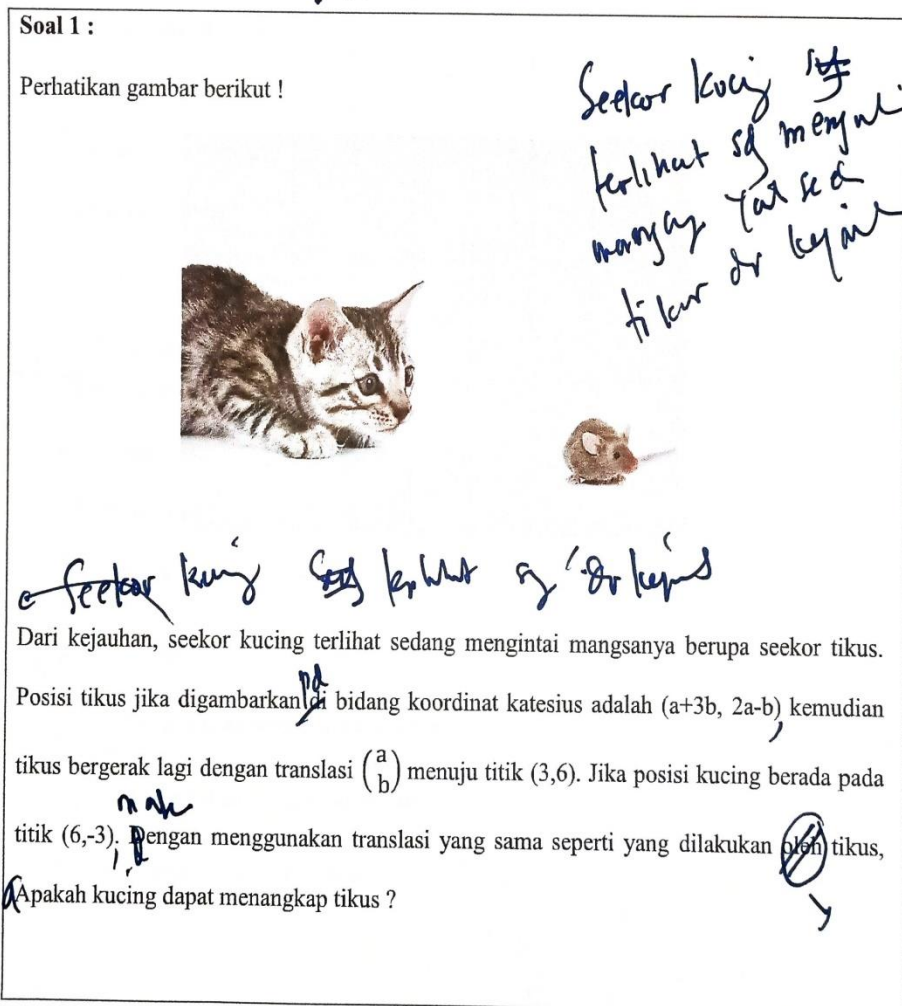 Soal 1 :
Perhatikan gambar berikut !
Seekor kucing
terlihat sdg
tikus dr
Seekor kucing
Dari kejauhan, seekor kucing terlihat sedang mengintai mangsanya berupa seekor tikus.
pd
Posisi tikus jika digambarkan di bidang koordinat katesius adalah (a+3b, 2a-b), kemudian
tikus bergerak lagi dengan translasi (a b) menuju titik (3,6). Jika posisi kucing berada pada
titik (6,-3). Dengan menggunakan translasi yang sama seperti yang dilakukan oleh tikus,
Apakah kucing dapat menangkap tikus ?